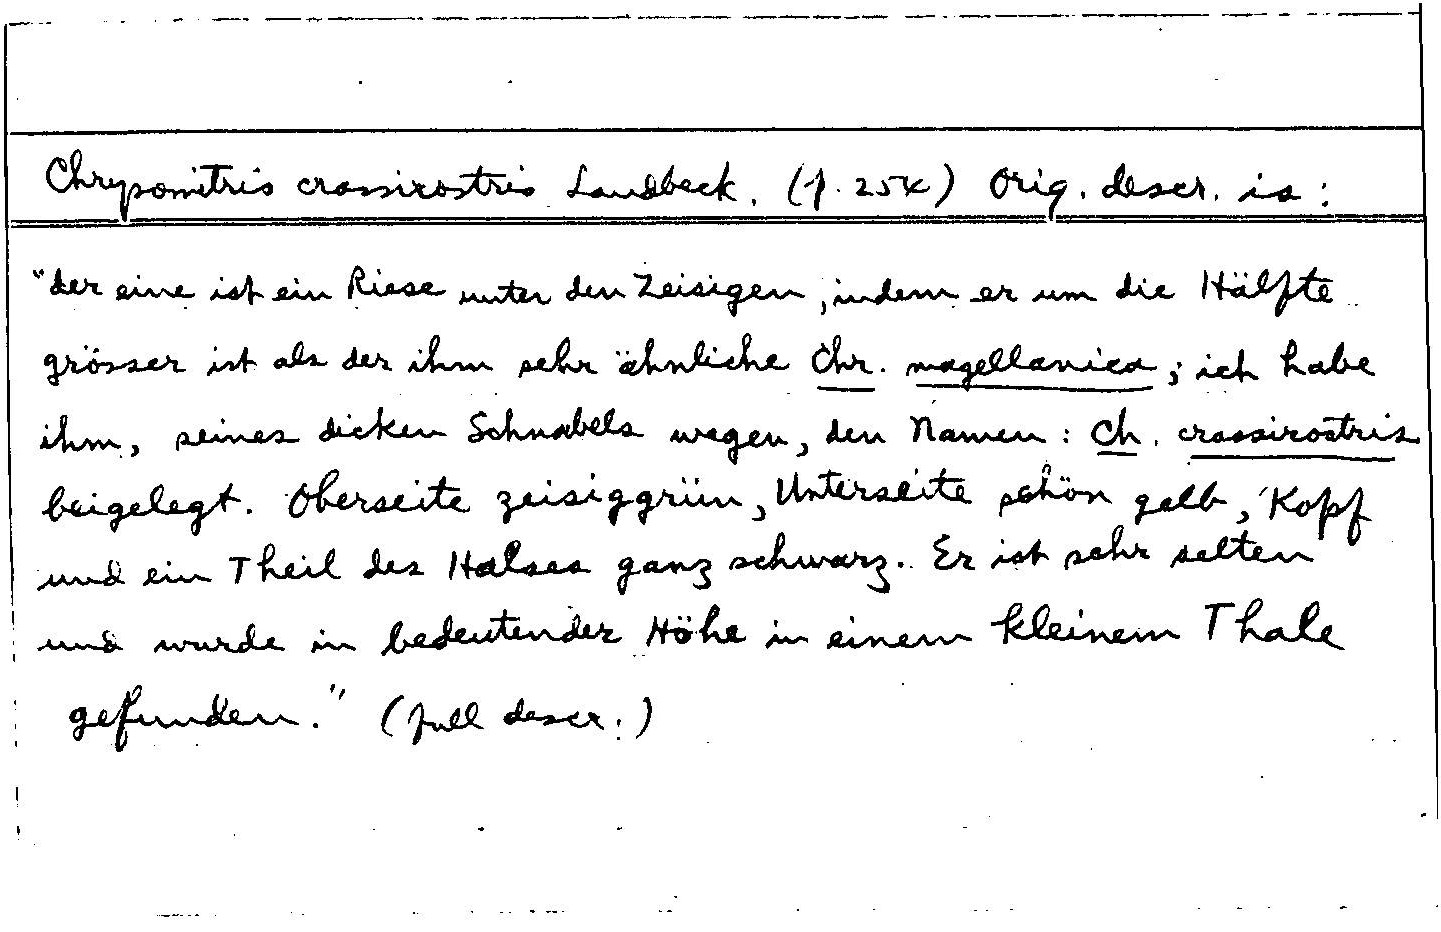 Chrysomitris crassirostris Landbeck. (p. 254) Orig. descr. is:
"der eine ist ein Riese unter den Zeisigen, indem er um die Hälfte
grösser ist als der ihm sehr ähnliche Chr. magellanica; ich habe
ihm, seines dicken Schnabels wegen, den Namen: Ch. crassirostris
beigelegt. Oberseite zeisiggrün, Unterseite schön gelb, Kopf
und ein Theil des Halses ganz schwarz. Er ist sehr selten
und wurde in bedeutender Höhe in einem kleinem Thale
gefunden." (full descr.)